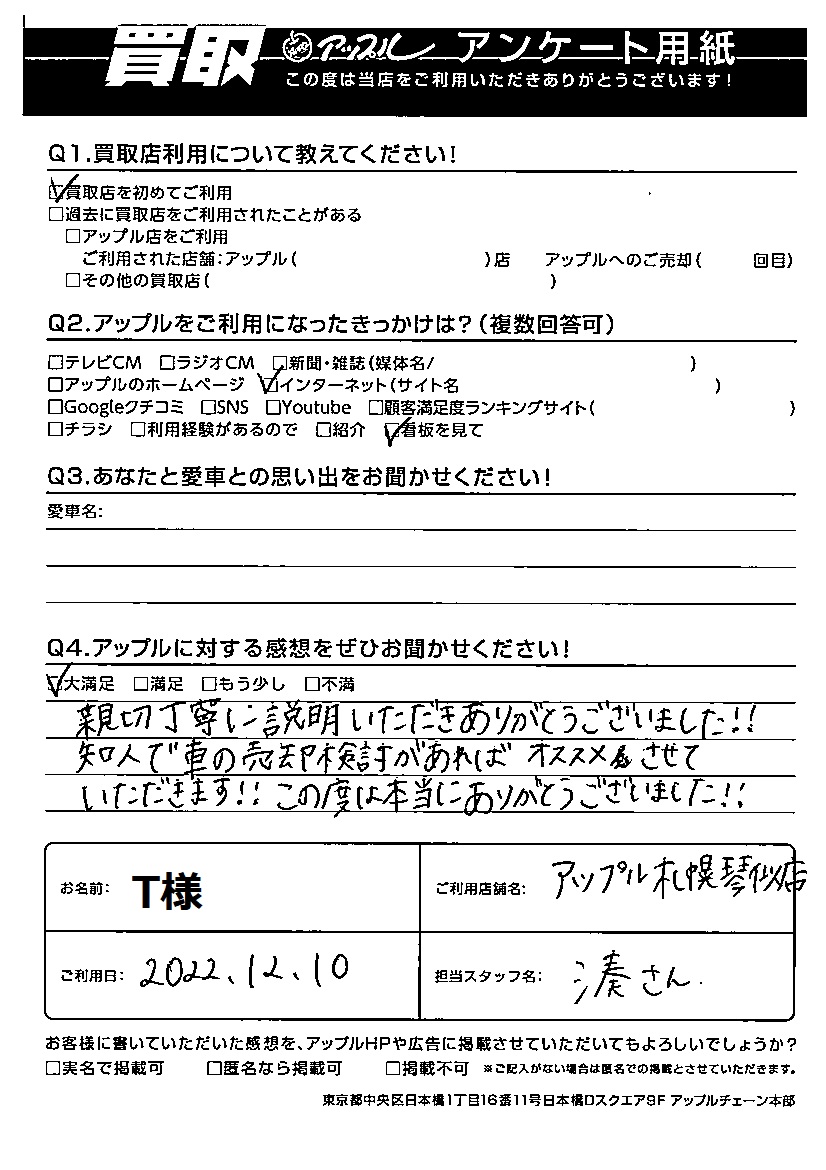 買取 アップル アンケート用紙
この度は当店をご利用いただきありがとうございます！
Q1.買取店利用について教えてください！
☑買取店を初めてご利用
□過去に買取店をご利用されたことがある
□アップル店をご利用
ご利用された店舗：アップル（　　　）店　アップルへのご売却（　　回目）
□その他の買取店（　　　）
Q2.アップルをご利用になったきっかけは？（複数回答可）
□テレビCM □ラジオCM □新聞・雑誌（媒体名/　　　）
□アップルのホームページ ☑インターネット（サイト名　　　）
□Googleクチコミ □SNS □Youtube □顧客満足度ランキングサイト（　　　）
□チラシ □利用経験があるので □紹介 ☑看板を見て
Q3.あなたと愛車との思い出をお聞かせください！
愛車名：
Q4.アップルに対する感想をぜひお聞かせください！
☑大満足 □満足 □もう少し □不満
親切丁寧に説明いただきありがとうございました!!
知人で車の売却検討があれば オススメさせて
いただきます!! この度は本当にありがとうございました!!
お名前： T様
ご利用店舗名： アップル札幌琴似店
ご利用日： 2022.12.10
担当スタッフ名： 湊さん.
お客様に書いていただいた感想を、アップルHPや広告に掲載させていただいてもよろしいでしょうか？
□実名で掲載可 □匿名なら掲載可 □掲載不可 ※ご記入がない場合は匿名での掲載とさせていただきます。
東京都中央区日本橋1丁目16番11号日本橋Dスクエア9F アップルチェーン本部